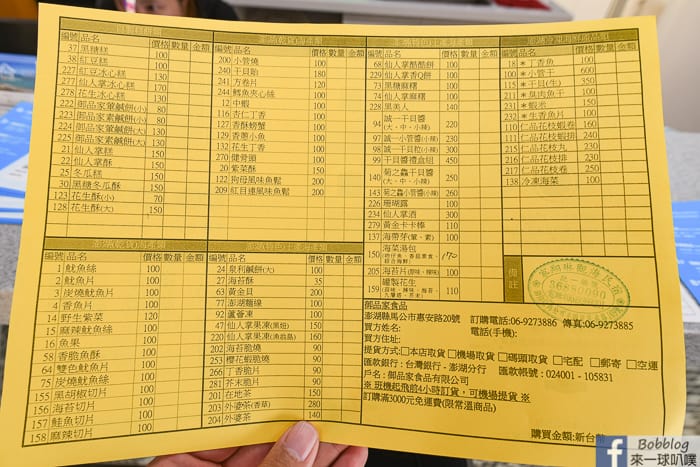 編號 品名 價格 數量 金額
37 黑糖糕 100
38 紅豆糕 100
227 紅豆冰心糕 130
277 仙人掌冰心糕 170
278 花生冰心糕 130
222 御品家軍鹹餅(小) 80
223 御品家素鹹餅(小) 80
224 御品家軍鹹餅(大) 130
225 御品家素鹹餅(大) 130
21 仙人掌糕 150
22 仙人掌酥 150
25 冬瓜糕 150
30 黑糖冬瓜酥 150
123 花生酥(小) 70
128 花生酥(大) 150
編號 品名 價格 數量 金額
200 小管燒 100
240 干貝飴 180
241 方卷片 120
244 鱈魚夾心絲 100
12 中蝦 190
116 杏仁丁香 100
127 香酥螃蟹 100
129 香脆小魚 100
132 花生丁香 100
270 健骨頭 100
20 紫菜酥 150
122 狗母風味魚鬆 200
209 紅目連風味魚鬆 200
編號 品名 價格 數量 金額
68 仙人掌酷酷餅 100
229 仙人掌香Q餅 100
73 黑糖麻糬 100
74 仙人掌麻糬 100
228 黑美人 140
94 誠一干貝醬(大、中、小辣) 220
97 誠一小管醬(小辣) 230
98 誠一干貝粒(小辣) 300
99 干貝醬禮盒組 450
140 菊之鱻小干貝醬(大、中、小辣) 250
143 菊之鱻小管醬(小辣) 260
226 珊瑚露 100
234 仙人掌酒 300
279 黃金卡卡棒 110
137 海帶芽(葷、素) 100
150 海菜湯包 170
205 海苔片(原味、辣味) 100
159 罐製花生 110
編號 品名 價格 數量 金額
18 *丁香魚 100
100 *小管干 600
115 *干貝(生) 350
211 *臭肉魚干 100
231 *蝦米 150
232 *生香魚片 100
110 仁品花枝蝦卷 160
111 仁品花枝蝦排 230
215 仁品花枝丸 230
216 仁品花枝排 230
217 仁品花枝蝦 230
138 冷凍海菜 100
編號 品名 價格 數量 金額
1 魷魚絲 100
2 魷魚片 100
3 炭燒魷魚片 100
4 香魚片 100
14 野生紫菜 120
15 麻辣魷魚絲 100
16 魚果 100
58 香脆魚酥 100
64 雙色魷魚片 100
75 炭燒魷魚絲 100
155 黑胡椒切片 100
156 海苔切片 100
157 鮭魚切片 100
158 麻辣切片 100
編號 品名 價格 數量 金額
24 泉利鹹餅(大) 100
27 海苔酥 35
63 黃金貝 200
77 澎湖麵線 100
92 蘆薈凍 100
47 仙人掌果凍(黑妞) 150
220 仙人掌果凍(漁翁島) 160
202 海苔脆燒 90
253 櫻花蝦脆燒 90
266 丁香脆片 90
281 芥末脆片 90
201 在地茶 150
203 外婆茶(香草) 280
204 外婆茶 140
備註
御品家食品
澎湖縣馬公市惠安路20號 訂購電話:06-9273886 傳真:06-9273885
買方姓名: 電話(手機):
買方住址:
提貨方式:□本店取貨 □機場取貨 □碼頭取貨 □宅配 □郵寄 □空運
匯款銀行:台灣銀行 - 澎湖分行 匯款帳號:024001 - 105831
戶名:御品家食品有限公司
※ 班機起飛前4小時訂貨,可機場提貨 ※
訂購滿3000元免運費(限常溫商品)
購買金額:新台幣
Bobblog
來一球叭噗